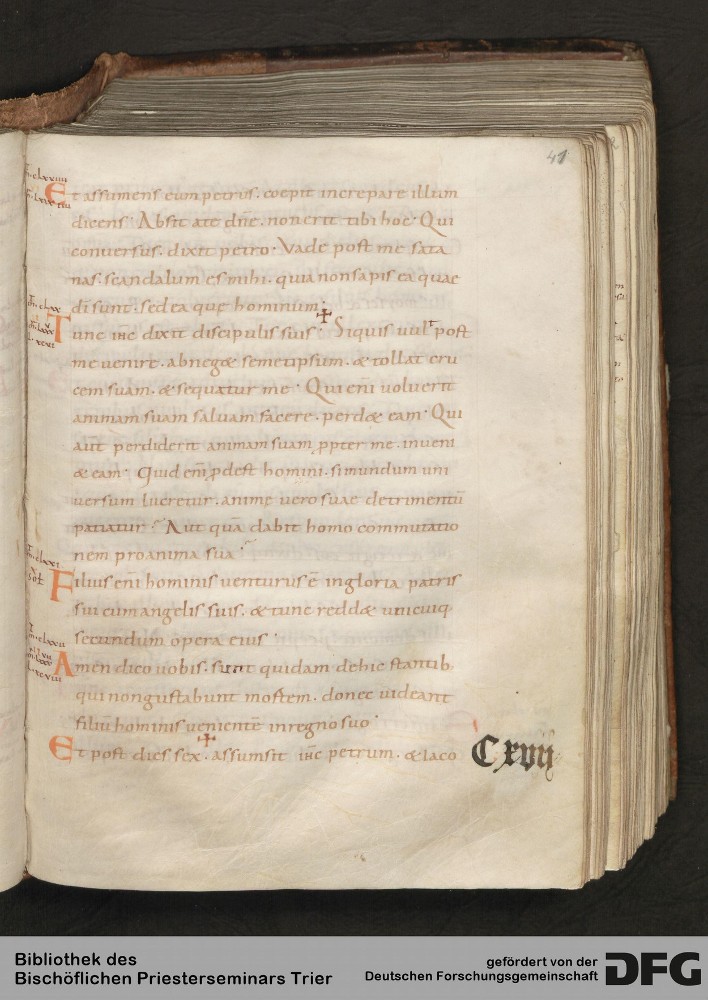 41
Et assumens eum petrus. coepit increpare illum
dicens. Absit a te dn̄e. non erit tibi hoc. Qui
conversus. dixit petro. Vade post me sata
nas. scandalum es mihi. quia non sapis ea quae
dī sunt. sed ea quę hominum.
Tunc ihc dixit discipulis suis. Siquis uult post
me venire. abneget semetipsum. & tollat cru
cem suam. & sequatur me. Qui enī voluerit
animam suam salvam facere. perdet eam. Qui
aūt perdiderit animam suam ꝓpter me. inveni
et eam. Quid enī ꝓdest homini. si mundum uni
versum lucretur. animę vero suae detrimentū
patiatur. Aut quā dabit homo commutatio
nem pro anima sua.
Filius enī hominis venturus ē in gloria patris
sui cum angelis suis. & tunc reddet unicuiq
secundum opera eius.
Amen dico vobis. sunt quidam de hic stantib.
qui non gustabunt mortem. donec videant
filiū hominis venientē in regno suo.
Et post dies sex. assumsit ihc petrum. & iaco
Cxvii
Bibliothek des
Bischöflichen Priesterseminars Trier
gefördert von der
Deutschen Forschungsgemeinschaft
DFG